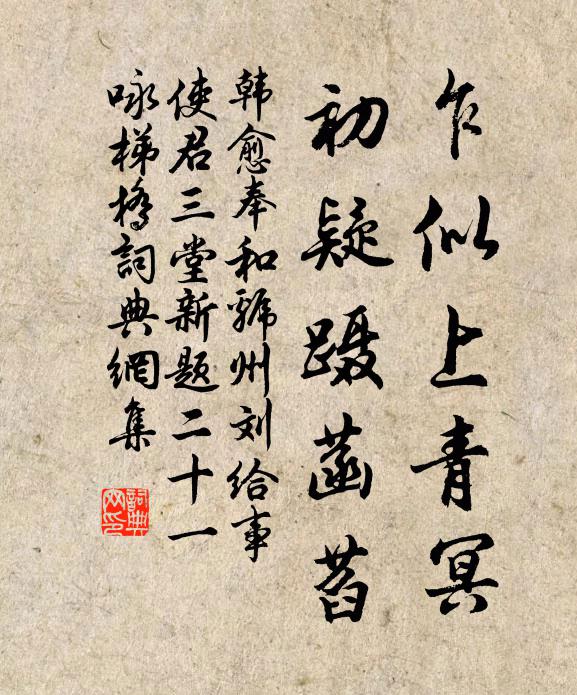 乍似上青冥
初疑蹑菡萏
韩愈奉和虢州刘给事
使君三堂新题二十一
咏梯桥詞典網集
詞典
网印